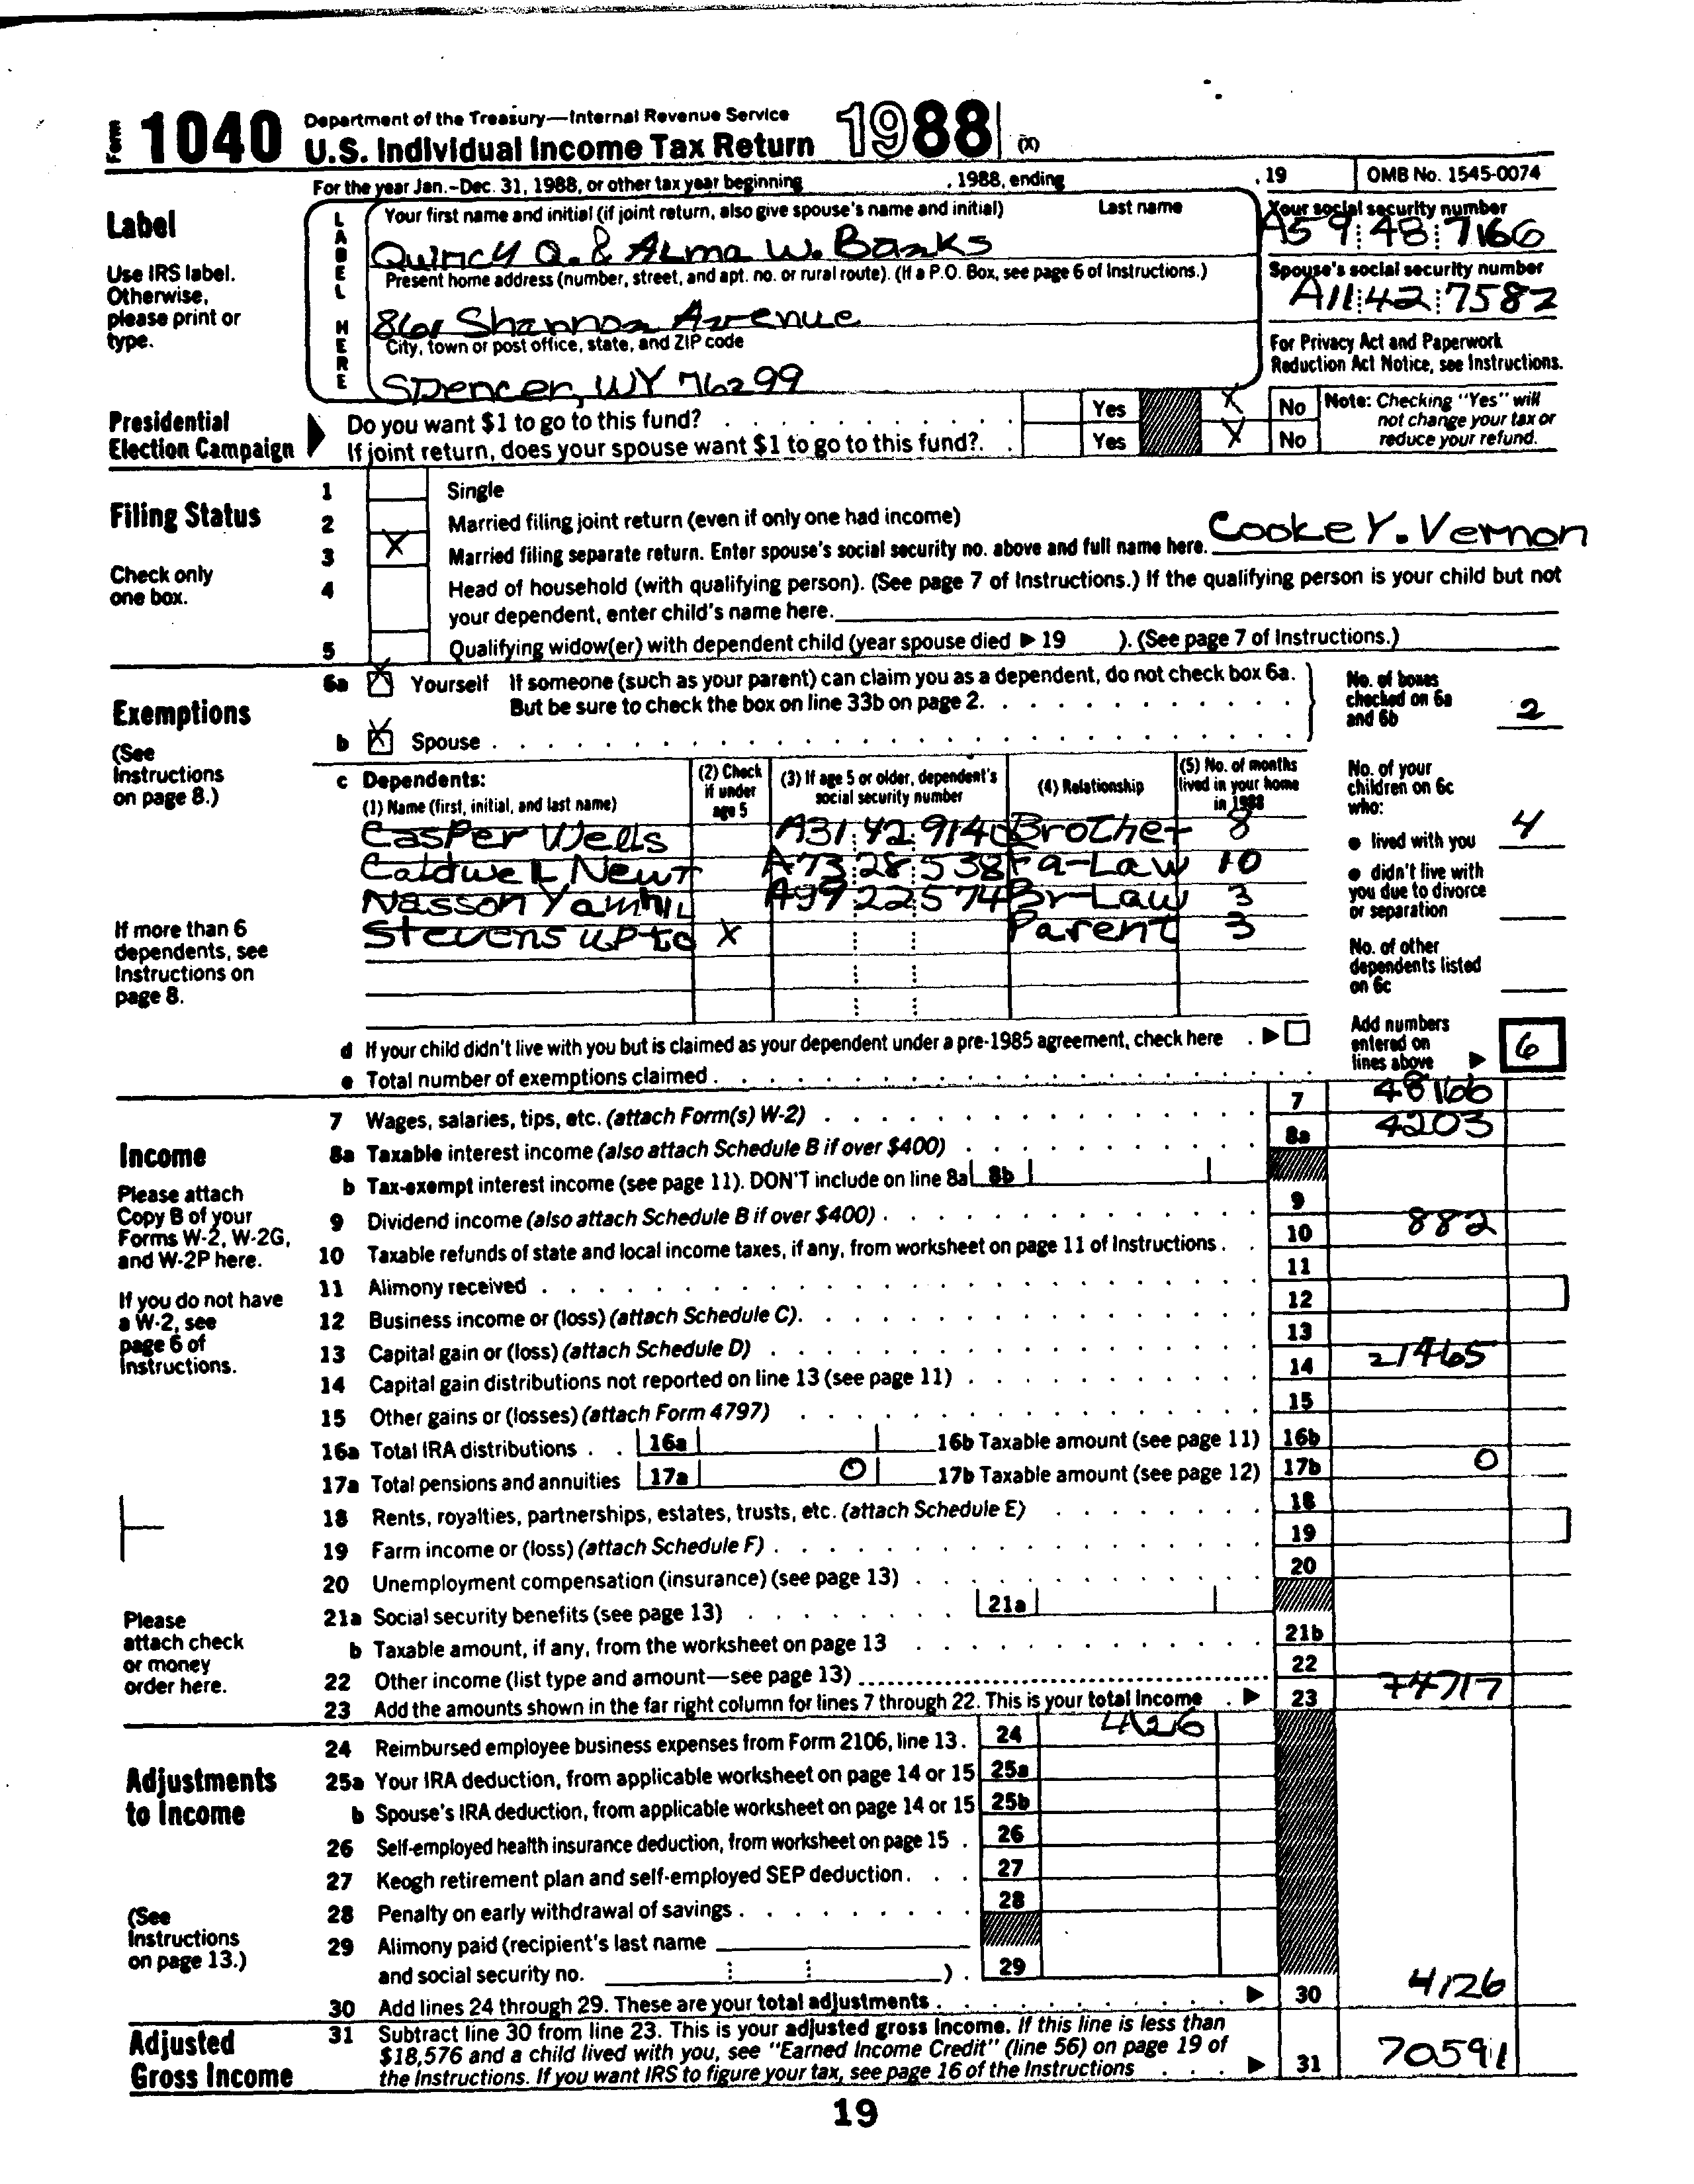 Form 1040 Department of the Treasury—Internal Revenue Service
U.S. Individual Income Tax Return 1988 (X)
For the year Jan.-Dec. 31, 1988, or other tax year beginning , 1988, ending , 19 OMB No. 1545-0074
Label
Use IRS label.
Otherwise,
please print or
type.
LABEL HERE
Your first name and initial (if joint return, also give spouse's name and initial) Last name
Quincy Q. & Alma W. Banks
Present home address (number, street, and apt. no. or rural route). (If a P.O. Box, see page 6 of Instructions.)
8601 Shannon Avenue
City, town or post office, state, and ZIP code
Spencer, WY 76299
Your social security number
A59 48 7166
Spouse's social security number
A11 42 7582
For Privacy Act and Paperwork
Reduction Act Notice, see Instructions.
Presidential
Election Campaign
Do you want $1 to go to this fund? Yes X No
If joint return, does your spouse want $1 to go to this fund? Yes X No
Note: Checking "Yes" will
not change your tax or
reduce your refund.
Filing Status
Check only
one box.
1 Single
2 Married filing joint return (even if only one had income)
3 X Married filing separate return. Enter spouse's social security no. above and full name here. Cooke Y. Vernon
4 Head of household (with qualifying person). (See page 7 of Instructions.) If the qualifying person is your child but not
your dependent, enter child's name here.
5 Qualifying widow(er) with dependent child (year spouse died ▶ 19 ). (See page 7 of Instructions.)
Exemptions
(See
Instructions
on page 8.)
If more than 6
dependents, see
Instructions on
page 8.
6a X Yourself If someone (such as your parent) can claim you as a dependent, do not check box 6a.
But be sure to check the box on line 33b on page 2.
b X Spouse
No. of boxes
checked on 6a
and 6b 2
c Dependents:
(1) Name (first, initial, and last name)
(2) Check
if under
age 5
(3) If age 5 or older, dependent's
social security number
(4) Relationship
(5) No. of months
lived in your home
in 1988
Casper Wells A31 42 9140 Brother 8
Caldwel Newt A73 28 538 Fa-Law 10
Nasson Yamhil A99 22 574 Br-Law 3
Stevens Upto X Parent 3
No. of your
children on 6c
who:
● lived with you 4
● didn't live with
you due to divorce
or separation
No. of other
dependents listed
on 6c
d If your child didn't live with you but is claimed as your dependent under a pre-1985 agreement, check here
e Total number of exemptions claimed
Add numbers
entered on
lines above ▶ 6
Income
Please attach
Copy B of your
Forms W-2, W-2G,
and W-2P here.
If you do not have
a W-2, see
page 6 of
Instructions.
Please
attach check
or money
order here.
7 Wages, salaries, tips, etc. (attach Form(s) W-2) 7 48166
8a Taxable interest income (also attach Schedule B if over $400) 8a 4203
b Tax-exempt interest income (see page 11). DON'T include on line 8a 8b
9 Dividend income (also attach Schedule B if over $400) 9
10 Taxable refunds of state and local income taxes, if any, from worksheet on page 11 of Instructions 10 882
11 Alimony received 11
12 Business income or (loss) (attach Schedule C) 12
13 Capital gain or (loss) (attach Schedule D) 13
14 Capital gain distributions not reported on line 13 (see page 11) 14 21465
15 Other gains or (losses) (attach Form 4797) 15
16a Total IRA distributions 16a 16b Taxable amount (see page 11) 16b
17a Total pensions and annuities 17a 0 17b Taxable amount (see page 12) 17b 0
18 Rents, royalties, partnerships, estates, trusts, etc. (attach Schedule E) 18
19 Farm income or (loss) (attach Schedule F) 19
20 Unemployment compensation (insurance) (see page 13) 20
21a Social security benefits (see page 13) 21a
b Taxable amount, if any, from the worksheet on page 13 21b
22 Other income (list type and amount—see page 13) 22
23 Add the amounts shown in the far right column for lines 7 through 22. This is your total income ▶ 23 74717
Adjustments
to Income
(See
Instructions
on page 13.)
24 Reimbursed employee business expenses from Form 2106, line 13. 24 4126
25a Your IRA deduction, from applicable worksheet on page 14 or 15 25a
b Spouse's IRA deduction, from applicable worksheet on page 14 or 15 25b
26 Self-employed health insurance deduction, from worksheet on page 15 26
27 Keogh retirement plan and self-employed SEP deduction 27
28 Penalty on early withdrawal of savings 28
29 Alimony paid (recipient's last name
and social security no. ) 29
30 Add lines 24 through 29. These are your total adjustments ▶ 30 4126
Adjusted
Gross Income
31 Subtract line 30 from line 23. This is your adjusted gross income. If this line is less than
$18,576 and a child lived with you, see "Earned Income Credit" (line 56) on page 19 of
the Instructions. If you want IRS to figure your tax, see page 16 of the Instructions ▶ 31 70591
19